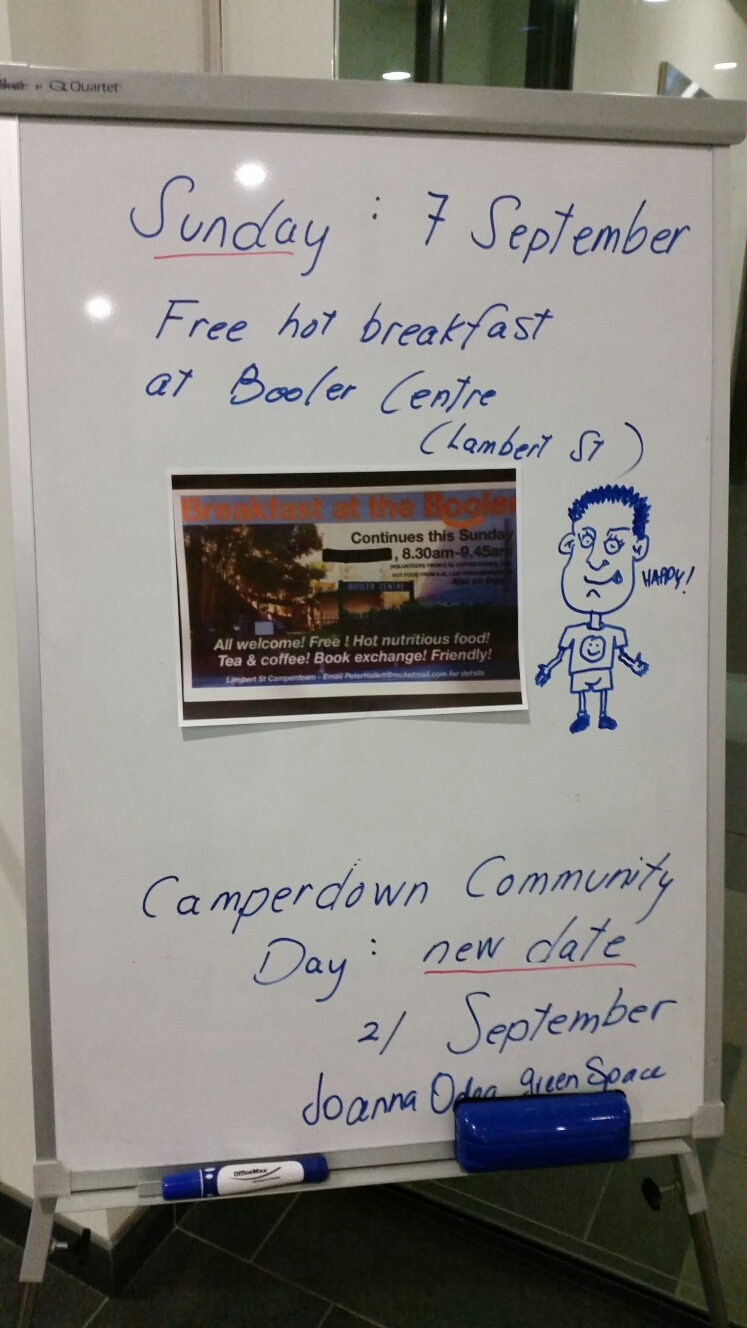 BY Quartet
Sunday : 7 September
Free hot breakfast
at Booler Centre
(Lambert St)
Breakfast at the Booler
Continues this Sunday
, 8.30am-9.45am
BOOLER CENTRE
All welcome! Free ! Hot nutritious food!
Tea & coffee! Book exchange! Friendly!
Lambert St Camperdown - Email PeterHallett@rocketmail.com for details
HAPPY!
Camperdown Community
Day : new date
21 September
Joanna Odea green Space
OfficeMax